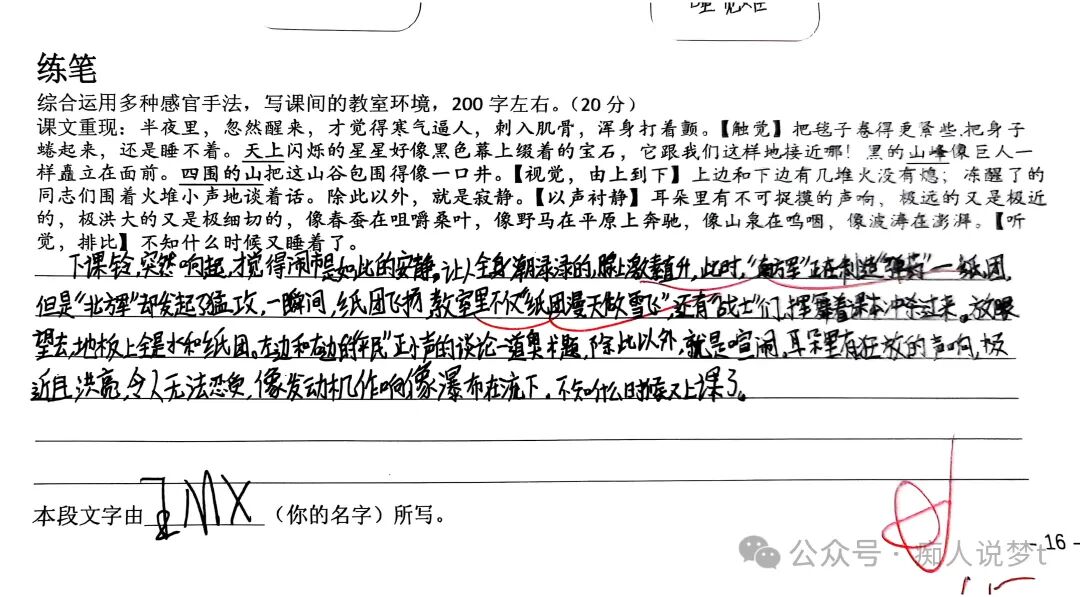 练笔
综合运用多种感官手法，写课间的教室环境，200 字左右。（20 分）
课文重现：半夜里，忽然醒来，才觉得寒气逼人，刺入肌骨，浑身打着颤。【触觉】把毯子卷得更紧些，把身子
蜷起来，还是睡不着。天上闪烁的星星好像黑色幕上缀着的宝石，它跟我们这样地接近哪！黑的山峰像巨人一
样矗立在面前。四围的山把这山谷包围得像一口井。【视觉，由上到下】上边和下边有几堆火没有熄；冻醒了的
同志们围着火堆小声地谈着话。除此以外，就是寂静。【以声衬静】耳朵里有不可捉摸的声响，极远的又是极近
的，极洪大的又是极细切的，像春蚕在咀嚼桑叶，像野马在平原上奔驰，像山泉在呜咽，像波涛在澎湃。【听
觉，排比】不知什么时候又睡着了。
下课铃，突然响起，才觉得闹市是如此的安静。让人全身潮渌渌的，脸上激素直升，此时，"南方军"正在制造"弹药"一纸团，
但是"北方军"却发起了猛攻，一瞬间，纸团飞扬，教室里不仅"纸团漫天吹雪飞"，还有"战士"们，挥舞着课本冲杀过来。放眼
望去，地板上全是水和纸团。左边和右边的"军民"正小声的谈论一道奥术题，除此以外，就是喧闹，耳朵里有狂放的声响，极
近且洪亮，令人无法忍免，像发动机作响像瀑布在流下。不知什么时候又上课了。
本段文字由 MX （你的名字）所写。
- 16 -
公众号·痴人说梦t